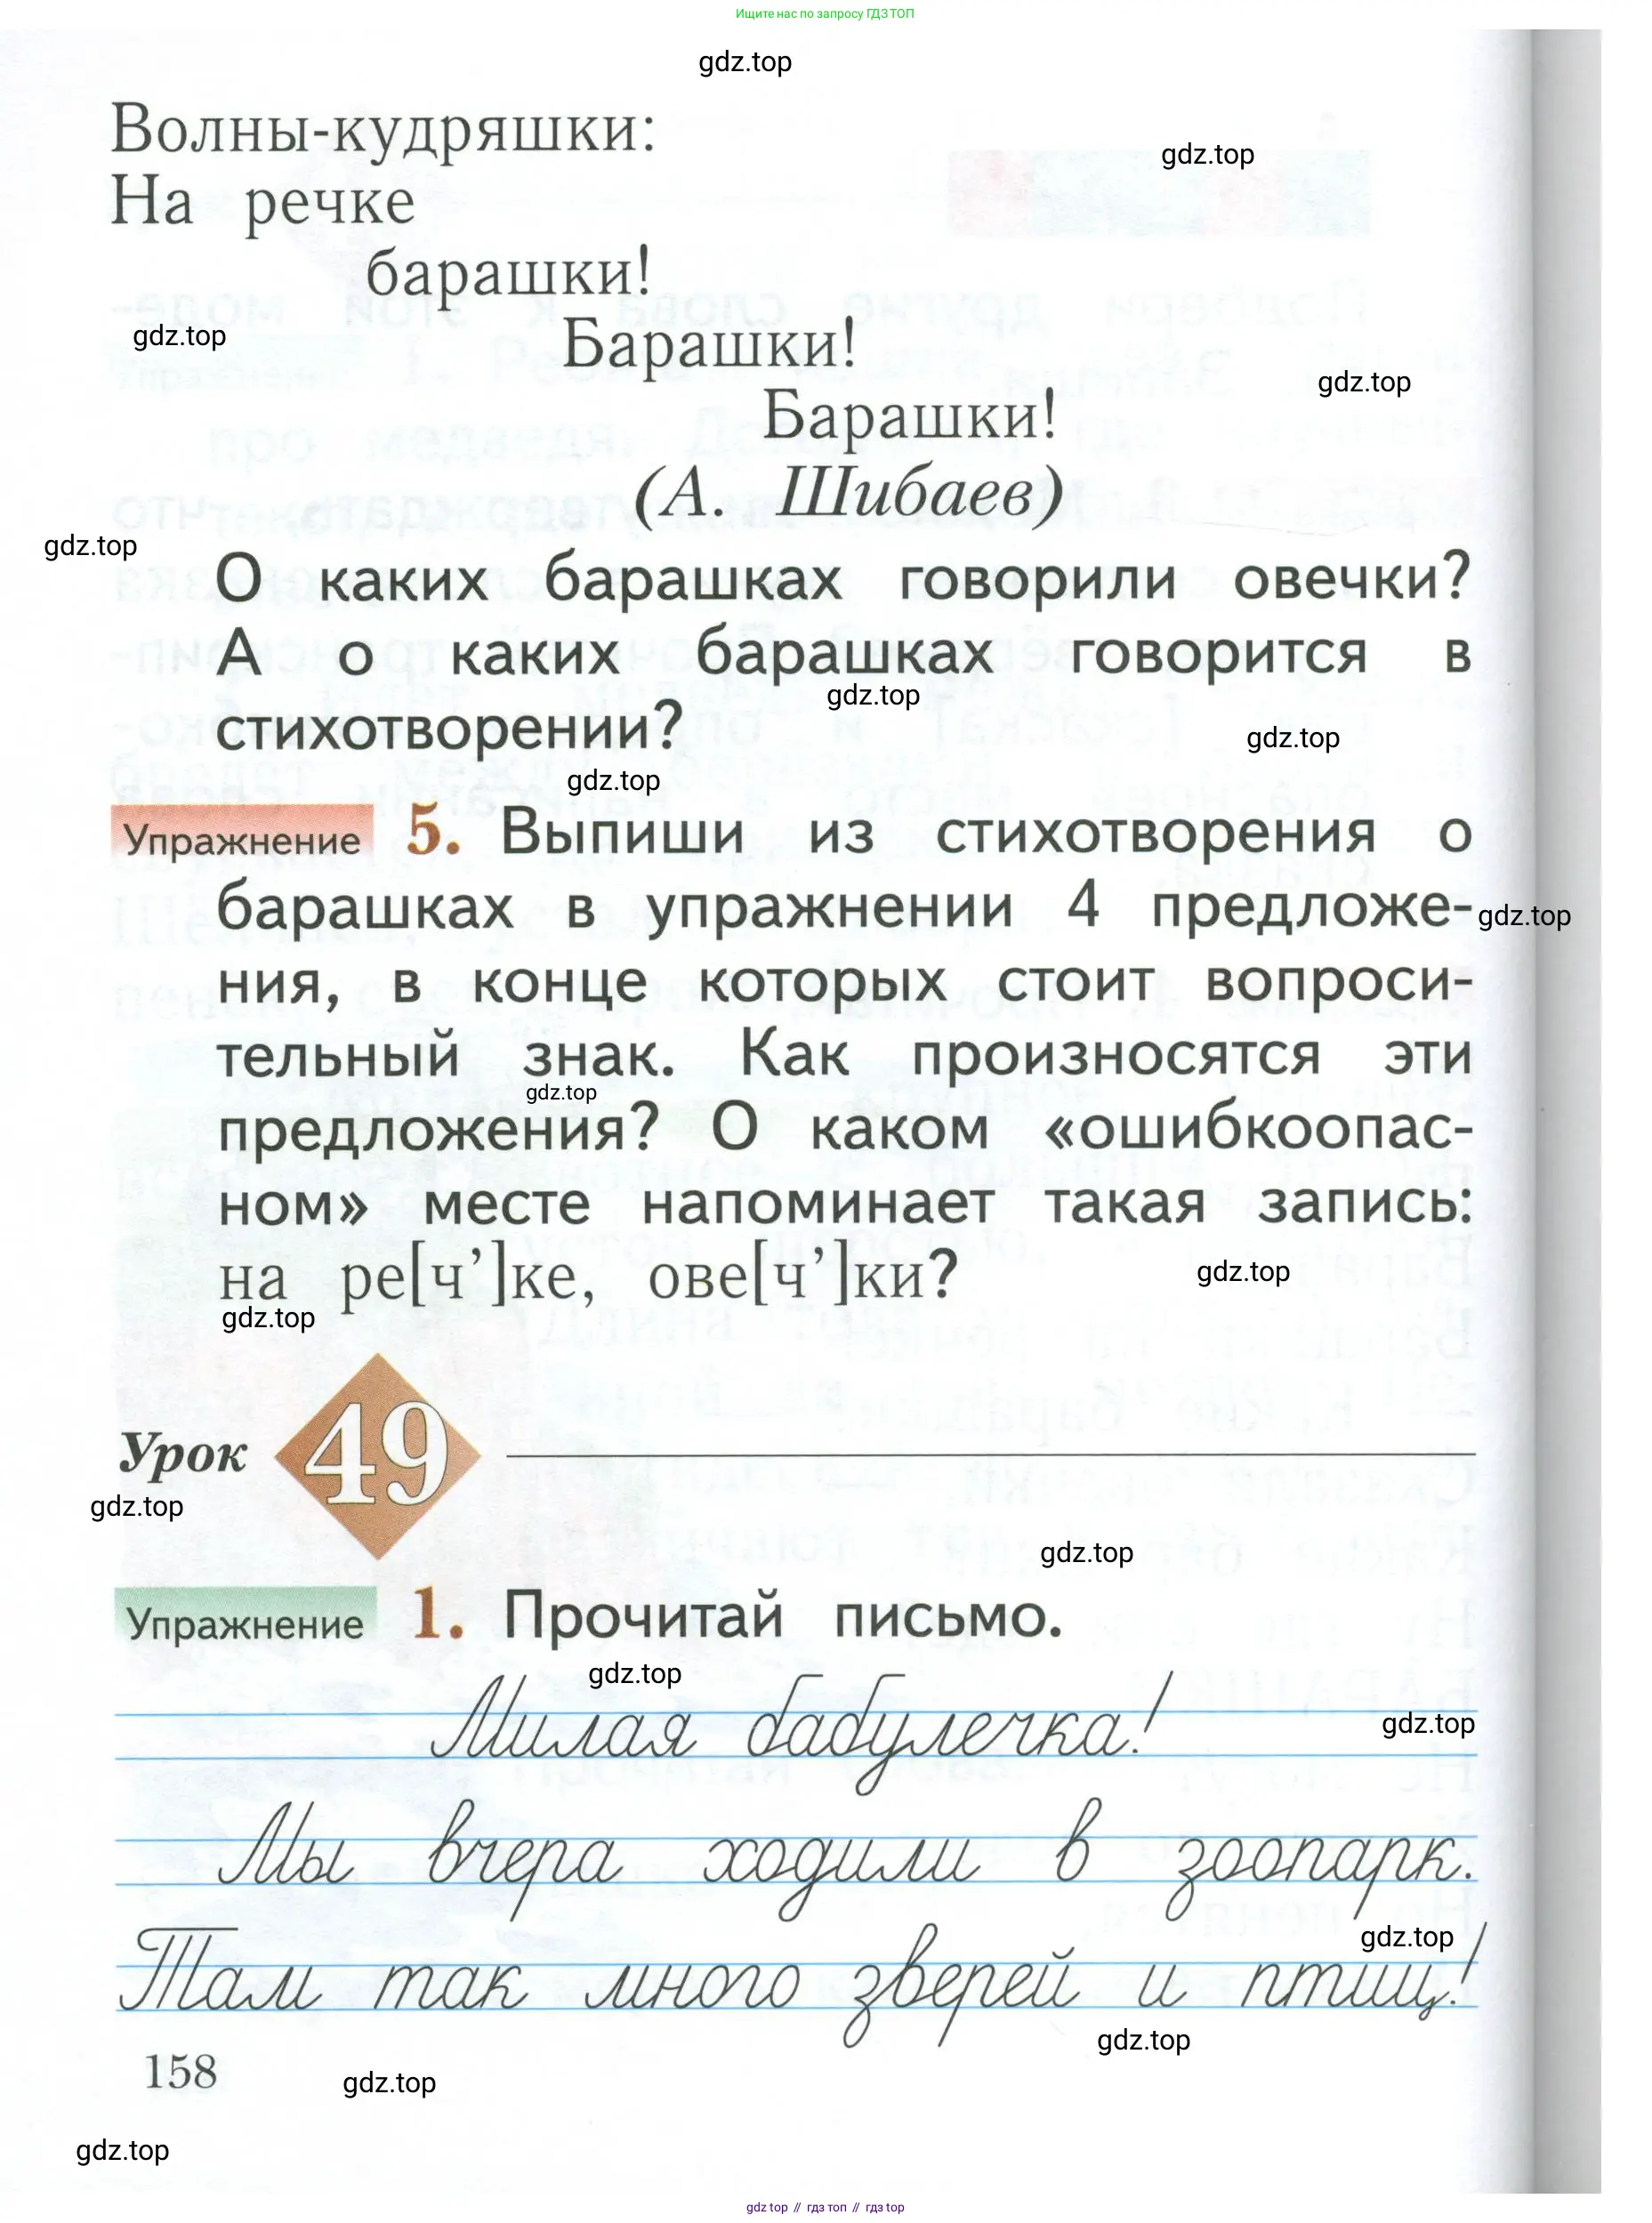 Ищите нас по запросу ГДЗ ТОП
gdz.top
Волны-кудряшки:
gdz.top
На речке
барашки!
gdz.top
Барашки!
gdz.top
Барашки!
(А. Шибаев)
gdz.top
О каких барашках говорили овечки?
А о каких барашках говорится в
gdz.top
стихотворении?
gdz.top
gdz.top
Упражнение 5. Выпиши из стихотворения о
барашках в упражнении 4 предложе-
gdz.top
ния, в конце которых стоит вопроси-
тельный знак. Как произносятся эти
gdz.top
предложения? О каком «ошибкоопас-
ном» месте напоминает такая запись:
на ре[ч’]ке, ове[ч’]ки?
gdz.top
gdz.top
Урок 49
gdz.top
gdz.top
Упражнение 1. Прочитай письмо.
gdz.top
Милая бабулечка!
gdz.top
Мы вчера ходили в зоопарк.
gdz.top
Там так много зверей и птиц!
gdz.top
158
gdz.top
gdz.top
gdz top // гдз топ // гдз top